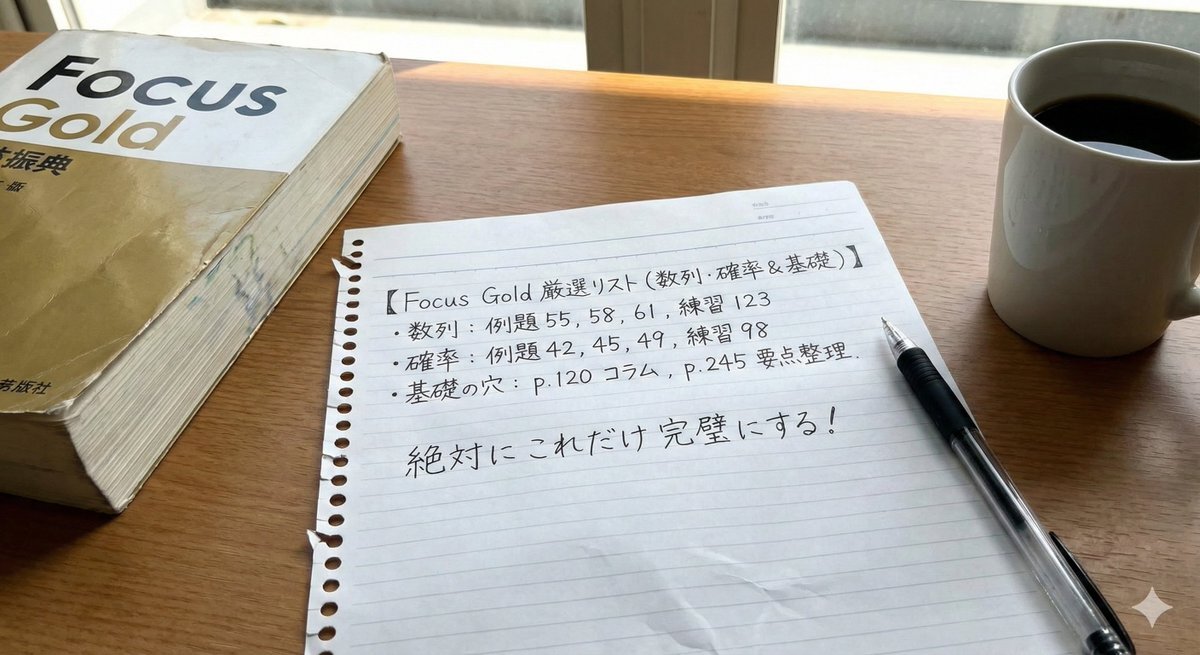 Focus
Gold
振典
版
版社
【Focus Gold 厳選リスト(数列・確率&基礎)】
・数列:例題55, 58, 61, 練習123
・確率:例題42, 45, 49, 練習98
・基礎の穴:p.120 コラム, p.245 要点整理.
絶対にこれだけ完璧にする!